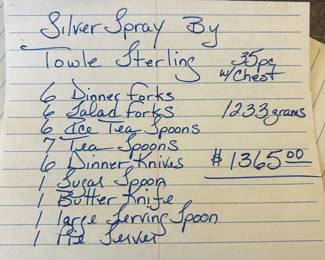 Silver Spray By
Towle Sterling
35pc
w/Chest
6 Dinner Forks
6 Salad Forks
6 Ice Tea Spoons
7 Tea Spoons
6 Dinner Knives
1 Sugar Spoon
1 Butter Knife
1 large Serving Spoon
1 Pie Server
1233 grams
$1365.00